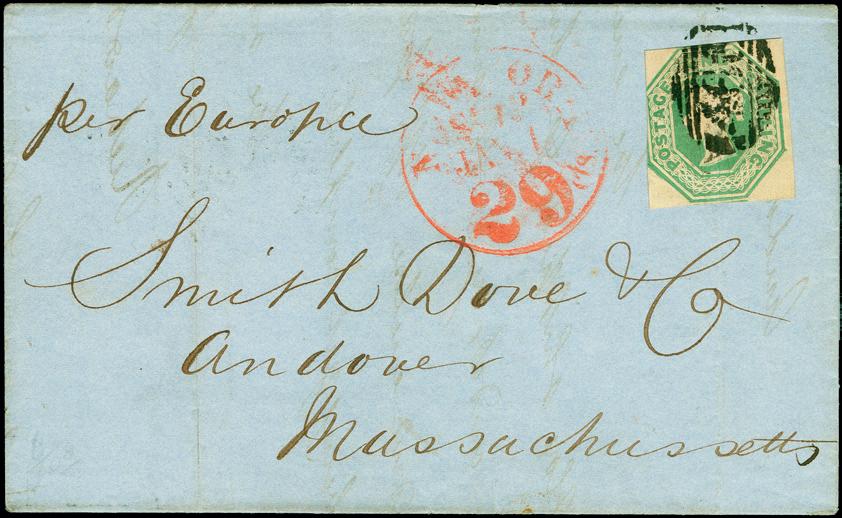 per Europa
NEW YORK
JAN
29 cts
POSTAGE SHILLING
Smith Dove & Co
Andover
Massachussetts